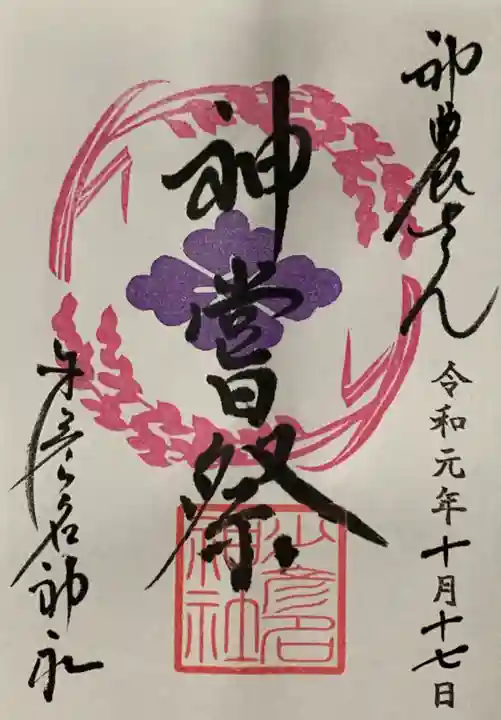 神農さん
令和元年十月十七日
神嘗祭
少彦名神社
少彦名
神社